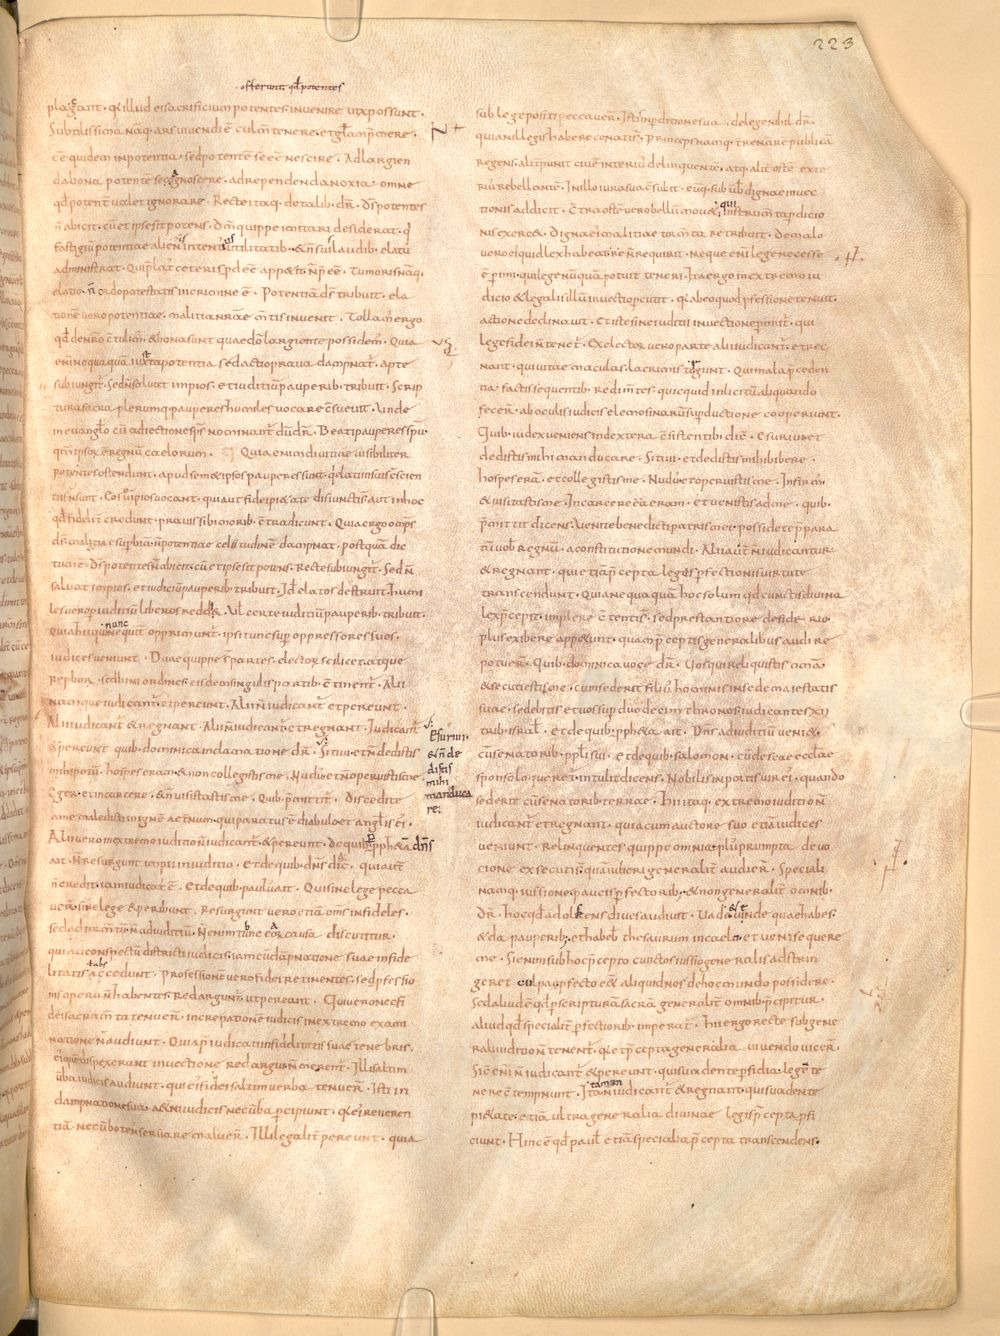 223
offerunt qđ potentes
placeant · q illud ei sacrificium potentes invenire vix possunt ·
Subtilissima naq ars vivendi ē culm̄ tenere · et glam p̄mere ·
ēe quidem in potentia · sed potentē se ēe nescire · Ad largien
da bona potentē se agnoscere · ad rependenda noxia omne
qđ potent valet ignorare · Recte itaq · de talib · dr̄ · Ds̄ potentes
n̄ abicit · cū et ipse sit potens · Dm̄ quippe imitari desiderat · q
fastigiū potentiae alienis intentus utilitatib · & n̄ suis laudib · elatus
administrat ·
elatio · n̄ ordo potestatis in crimine ē · Potentiā ds̄ tribuit · ela
tionē vero potentiae · malitia nr̄ae mentis invenit · Tollam ergo
qđ de nr̄o ētulim · & bona sunt quae do largiente possidem · Quia
enim nequaquā iusta potentia · sed actio prava dampnat · apte
subiungit · Sed n̄ salvat impios · et iuditiū pauperib · tribuit · Scrip
tura sacra plerumq pauperes humiles vocare ēsuevit · Unde
in evanglo cū adiectione sp̄s nominant̄ dū dr̄ · Beati pauperes spu ·
qm̄ ipsoꝝ ē regnū caelorum · Quia enim divitiae visibiliter
potentes ostendunt · apud semet ipsos pauperes sunt · q elati in suis ēscien
tiis n̄ sunt · Eos v̄ impios vocant · qui aut fidei pietate disiuncti s̄ · aut in hoc
qđ fidelit credunt · pravis sibi morib · ētradicunt · Quia ergo omp̄s
ds̄ malitia et supbia · n̄ potentiae celsitudinē dampnat · postquā dic
tū ē · Ds̄ potentes n̄ abicit · cū et ipse sit potens · Recte subiungit̄ · Sed n̄
salvat impios · et iudiciū pauperib · tribuit · Id ē elatos destruit · humi
les vero p iuditiū liberos reddit · Vel certe iuditiū pauperib · tribuit ·
Quia hi qui nunc nequit̄ opprimunt̄ · ipsi tunc sup oppressores suos ·
iudices veniunt · Duae quippe s̄ partes · electoꝝ scilicet · atque
reproboꝝ · sed bini ordines eisdem singulis partib · ētinent̄ · Alii
namque iudicant̄ · et pereunt · Alii n̄ iudicant̄ et pereunt ·
Alii iudicant̄ & regnant · Alii n̄ iudicant̄ et regnant · Iudicant̄
& pereunt quib · dominica inclamatione dr̄ · Sitivi · et n̄ dedistis
mihi potū · hospes eram & non collegistis me · Nudus et n̄ operuistis me
Eger · et in carcere · & n̄ visitastis me · Quib · p̄mittit̄ · Discedite
a me maledicti in ignē aet̄num · qui paratus ē diabulo et anglis ei ·
Alii vero in extremo iuditio n̄ iudicant̄ · & pereunt · De quib · pph&a
ait · N̄ resurgunt impii in iuditio · Et de quib · dn̄s dic · qui aut̄
n̄ credit · iam iudicat ē · Et de quib · paulus ait · Qui sine lege pecca
ver̄ · sine lege & peribunt · Resurgunt vero etiā om̄s infideles ·
sed ad tormtū n̄ ad iuditiū · N̄ enim tunc eoꝝ causa discutitur ·
quia ad conspectū districti iudicis · iam cū dāpnatione suae infide
litatis accedunt · Professionē vero fidei retinentes · sed pfessio
nis opera n̄ habentes · Redarguunt̄ ut pereant · Qui vero nec fi
dei sacramta tenuer̄ · increpationē iudicis in extremo exami
natione n̄ audiunt · Quia p̄iudicati infidelitatis suae tenebris ·
ei quē dispexerunt invectione redargui n̄ merent̄ · Illi saltim
v̄ba iudicis audiunt · qui ei fidei saltim verba tenuer̄ · Isti in
dampnatione sua · aet̄ni iudicis nec v̄ba pcipiunt · q ei reveren
tiā nec v̄bo tenus servare maluer̄ · Illi legalit̄ pereunt · quia
Esurivi ·
& n̄ de
distis
mihi
manduca
re ·
dn̄s
sub lege positi peccaver̄ · Isti in pditione sua · de lege nihil dr̄ ·
quia nil legis habere conati s̄ · Princeps namq · trenā re publicā
regens · alit̄ punit civē interiū delinquentē · atq · alit̄ ostē exte
riū rebellantē · In illo iura sua ēsulit · eūq · sub v̄b dignae invec
tionis addicit · Ētra ostē vero bellū mov& · instrum̄ta pdicio
nis exerc& · Digna ei malitiae torm̄ta retribuit · De malo
vero ei quid lex habeat · req̄rēre n̄ requirit · neque eni lege necesse
ē pimi · qui lege nūquā potuit teneri · Ita ergo in extremo iu
dicio & legalis illū invectio pcutit · q ab eo quod pfessione tenuit ·
actione declinavit · Et iste sine iuditii invectione pimit̄ · qui
lege fidei n̄ tenet̄ · Ex electoꝝ vero parte alii iudicant̄ · et reg
nant · qui vitae maculas lacrimis tergunt · Qui mala p̄ceden
tia factis sequentib · redim̄tes · quicquid inlicitū aliquando
fecer̄ · ab oculis iudicis elemosinarū supductione cooperiunt ·
Quib · iudex veniens in dextera ēsistentib · dic̄ · Esurivi et
dedistis mihi manducare · Sitivi · et dedistis mihi bibere ·
hospes era · et collegistis me · Nudus et operuistis me · Infirm
& visitastis me · In carcere eā eram · et venistis ad me · quib ·
p̄mittit dicens · Venite benedicti patris mei · possidete ppara
tū vob regnū · a constitutione mundi · Alii aut̄ n̄ iudicantur
& regnant · qui etiā p̄cepta legis pfectionis virtute
transcendunt · Quia nequaquā hoc solum qđ cunctis divina
lex p̄cepit · implere ētenti s̄ · sed prestantiore desiderio
plus exibere appetunt · quam p̄ceptis generalibus audire
potuer̄ · Quib · dominica voce dr̄ · Vos qui reliquistis omnia
& secuti estis me · cum sederit filius hominis in sede maiestatis
suae · sedebitis et vos sup duodecim thronos · iudicantes xii
trib · isrl̄ · Et de quib · pph&a ait · Dn̄s ad iuditiū veni& ·
cū senatorib · ppli sui · et de quib · salomon · cū de scae ecclae
sponso loqueret̄ · intulit dicens · Nobilis in portis vir ei · quando
sederit cū senatorib · terrae · Hi itaq · extremo iuditio n̄
iudicant̄ et regnant · quia cum auctore suo etiā iudices
veniunt · Relinquentes quippe omnia · plus prompta devo
cione exsecuti s̄ · quā iuberi generalit̄ audier̄ · Speciali
namq · iussione paucis pfectorib; & non generalit̄ omnib ·
dr̄ · hoc qđ adolescens dives audivit · Vade & vende quae habes ·
& da pauperib; et habeb thesaurum in caelo · et veni sequere
me · Si enim sub hoc p̄cepto cunctos iussio generalis adstrin
geret · culpa pfecto e& aliquid nos de hoc mundo possidere ·
Sed aliud ē qđ p scripturā sacrā generalit̄ omnib · p̄cipitur ·
aliud qđ specialit̄ pfectiorib · imperat̄ · Hi ergo recte sub gene
rali iuditio n̄ tenent̄ · q et p̄cepta generalia vivendo vicer̄ ·
Sic eni n̄ iudicant̄ & pereunt · qui suadente pfidia · lege te
nere ētempnunt · Ita n̄ iudicant̄ & regnant · qui suadente
pietate · etiā ultra generalia divinae legis p̄cepta pfi
ciunt · Hinc ē qđ paul etiā specialia p̄cepta transcendens ·